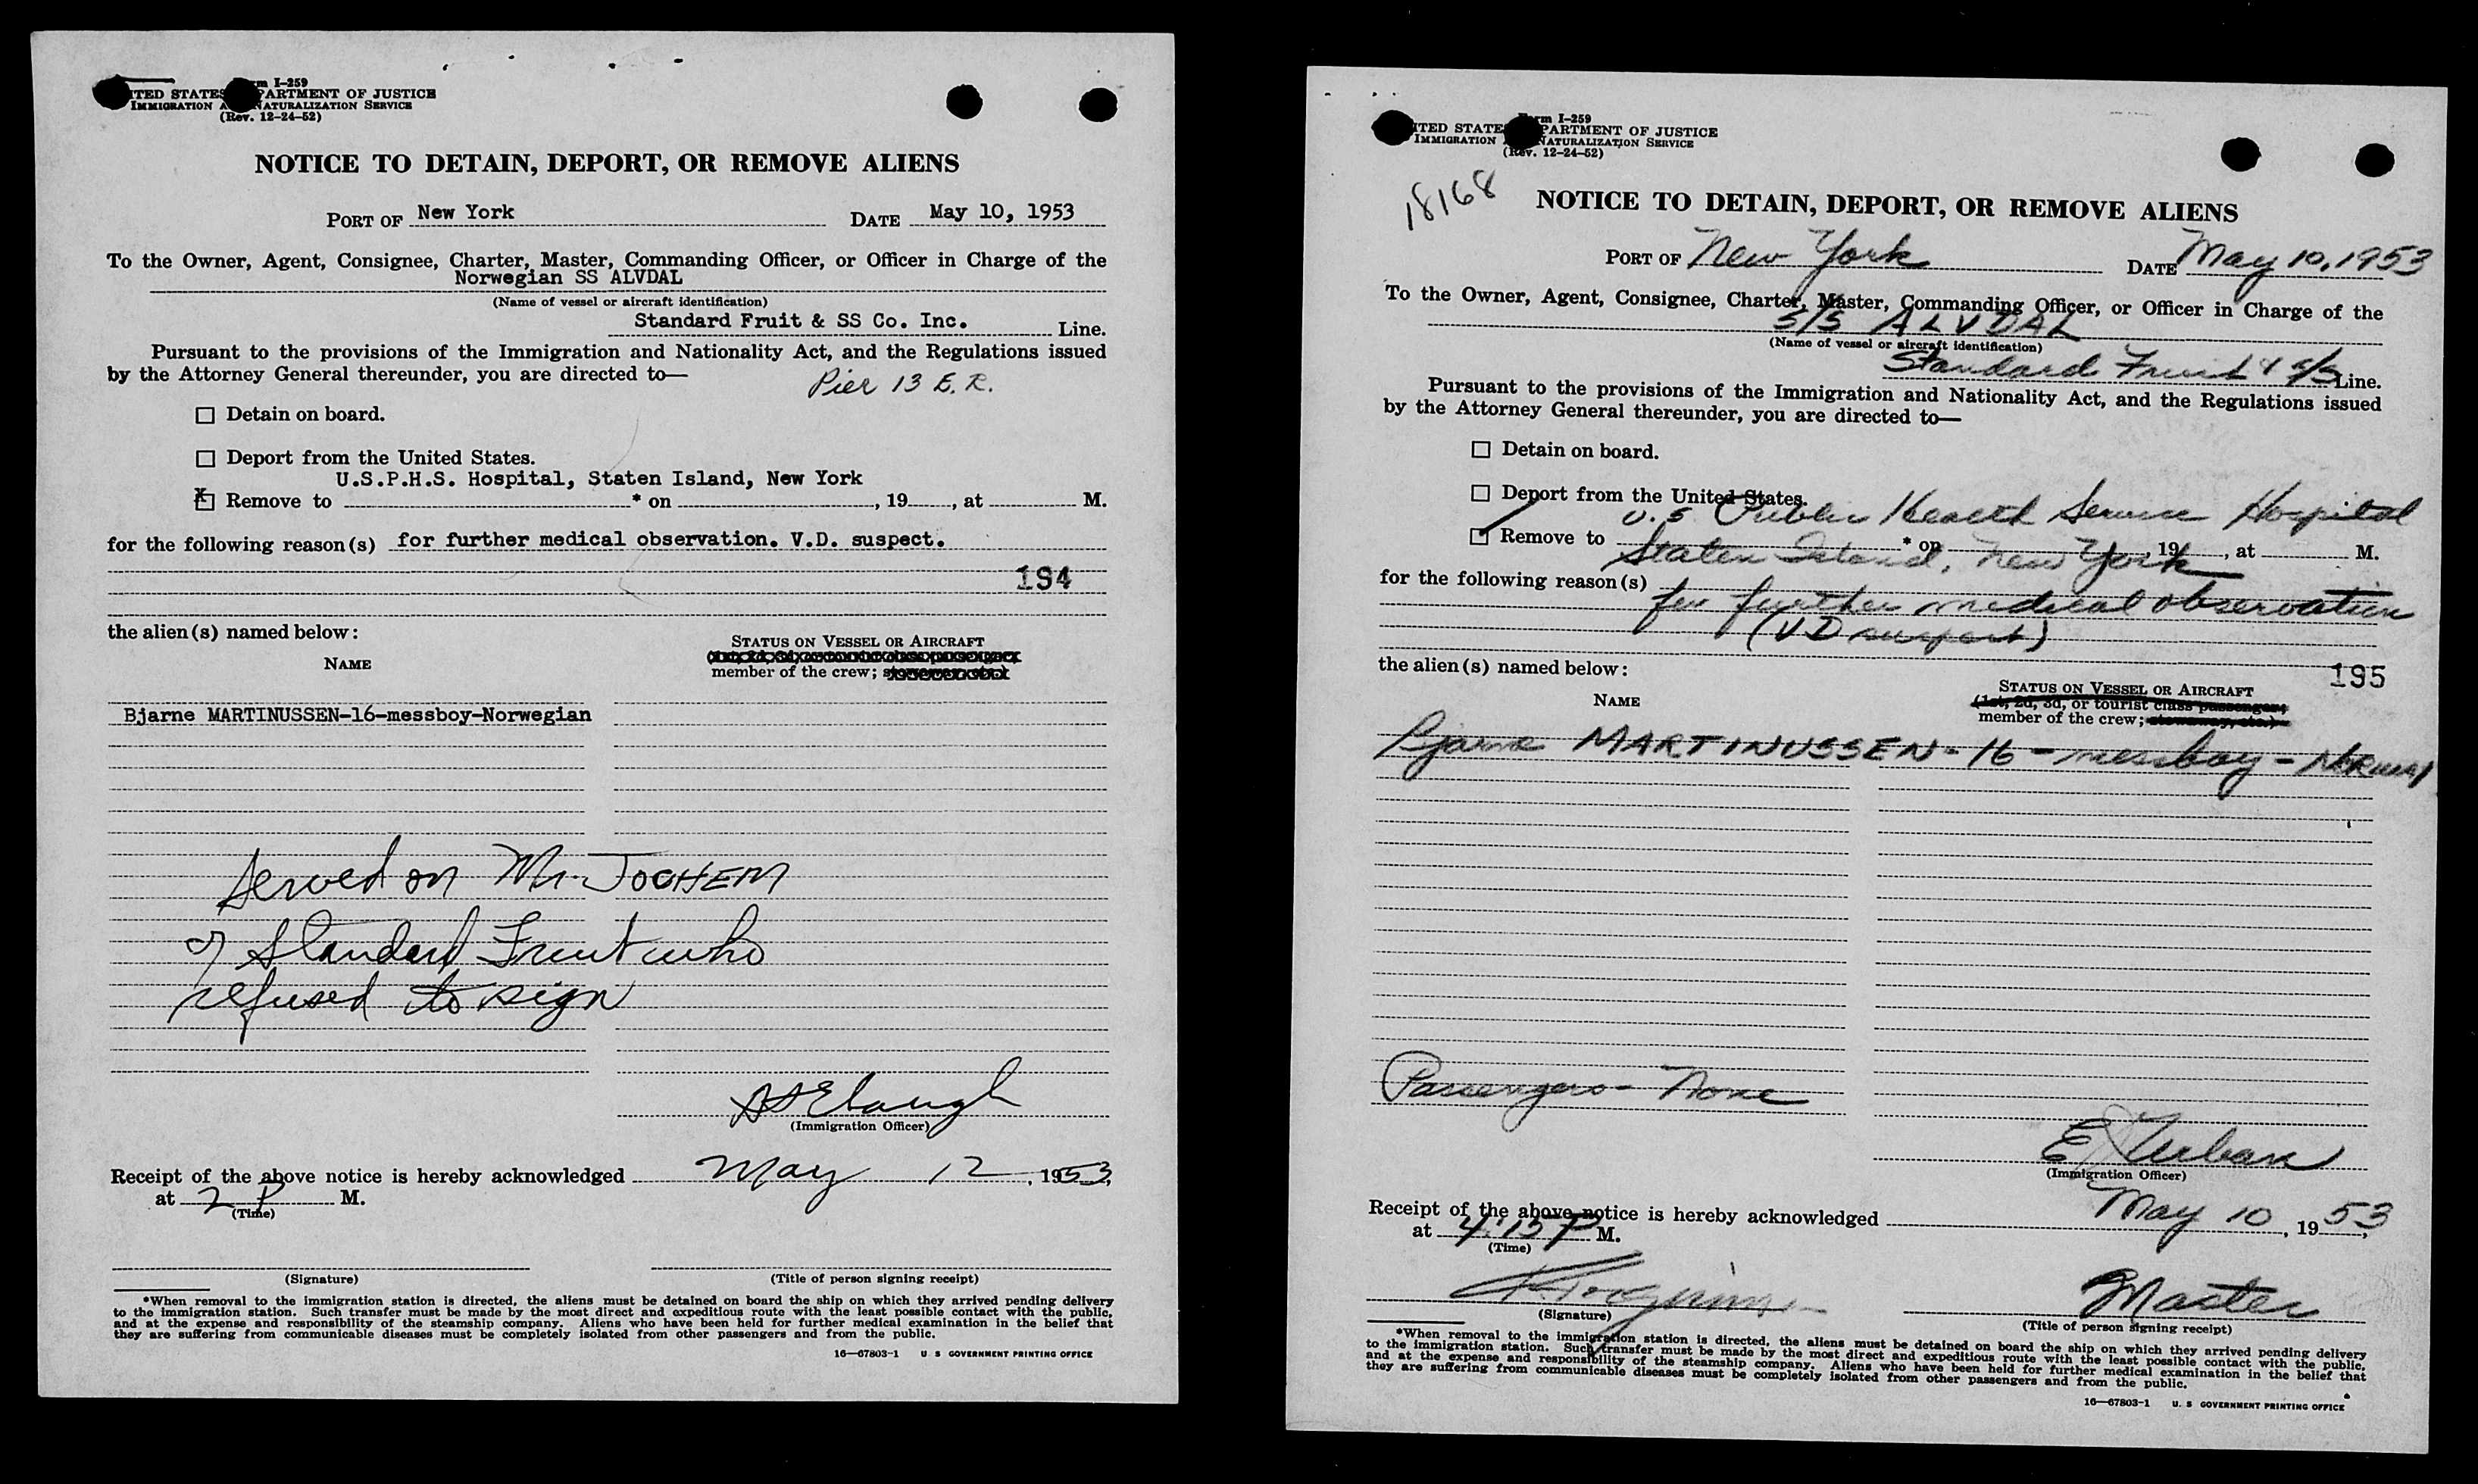 Form I-259
UNITED STATES DEPARTMENT OF JUSTICE
IMMIGRATION AND NATURALIZATION SERVICE
(Rev. 12-24-52)
NOTICE TO DETAIN, DEPORT, OR REMOVE ALIENS
PORT OF New York DATE May 10, 1953
To the Owner, Agent, Consignee, Charter, Master, Commanding Officer, or Officer in Charge of the
Norwegian SS ALVDAL
(Name of vessel or aircraft identification)
Standard Fruit & SS Co. Inc. Line.
Pursuant to the provisions of the Immigration and Nationality Act, and the Regulations issued
by the Attorney General thereunder, you are directed to—
Pier 13 E. R.
☐ Detain on board.
☐ Deport from the United States.
U.S.P.H.S. Hospital, Staten Island, New York
☒ Remove to * on , 19 , at M.
for the following reason(s) for further medical observation. V.D. suspect.
194
the alien(s) named below:
STATUS ON VESSEL OR AIRCRAFT
NAME
member of the crew;
Bjarne MARTINUSSEN-16-messboy-Norwegian
Served on Mr. JOCHEM
of Standard Fruit who
refused to sign
(Immigration Officer)
Receipt of the above notice is hereby acknowledged May 12, 1953,
at 2 P M.
(Time)
(Signature) (Title of person signing receipt)
*When removal to the immigration station is directed, the aliens must be detained on board the ship on which they arrived pending delivery
to the immigration station. Such transfer must be made by the most direct and expeditious route with the least possible contact with the public,
and at the expense and responsibility of the steamship company. Aliens who have been held for further medical examination in the belief that
they are suffering from communicable diseases must be completely isolated from other passengers and from the public.
16—67803-1 U S GOVERNMENT PRINTING OFFICE
Form I-259
UNITED STATES DEPARTMENT OF JUSTICE
IMMIGRATION AND NATURALIZATION SERVICE
(Rev. 12-24-52)
18168
NOTICE TO DETAIN, DEPORT, OR REMOVE ALIENS
PORT OF New York DATE May 10, 1953
To the Owner, Agent, Consignee, Charter, Master, Commanding Officer, or Officer in Charge of the
S/S ALVDAL
(Name of vessel or aircraft identification)
Standard Fruit & S/S Line.
Pursuant to the provisions of the Immigration and Nationality Act, and the Regulations issued
by the Attorney General thereunder, you are directed to—
☐ Detain on board.
☐ Deport from the United States.
U.S. Public Health Service Hospital
☑ Remove to * on , 19 , at M.
Staten Island, New York
for the following reason(s)
for further medical observation
(VD suspect)
the alien(s) named below:
195
STATUS ON VESSEL OR AIRCRAFT
NAME
(1st, 2d, 3d, or tourist class passenger;
member of the crew; stowaway, etc.)
Bjarne MARTINUSSEN - 16 - messboy -
Passengers - None
E Urban
(Immigration Officer)
Receipt of the above notice is hereby acknowledged May 10, 1953,
at 4:15 P M.
(Time)
Master
(Signature) (Title of person signing receipt)
*When removal to the immigration station is directed, the aliens must be detained on board the ship on which they arrived pending delivery
to the immigration station. Such transfer must be made by the most direct and expeditious route with the least possible contact with the public,
and at the expense and responsibility of the steamship company. Aliens who have been held for further medical examination in the belief that
they are suffering from communicable diseases must be completely isolated from other passengers and from the public.
16—67803-1 U. S GOVERNMENT PRINTING OFFICE